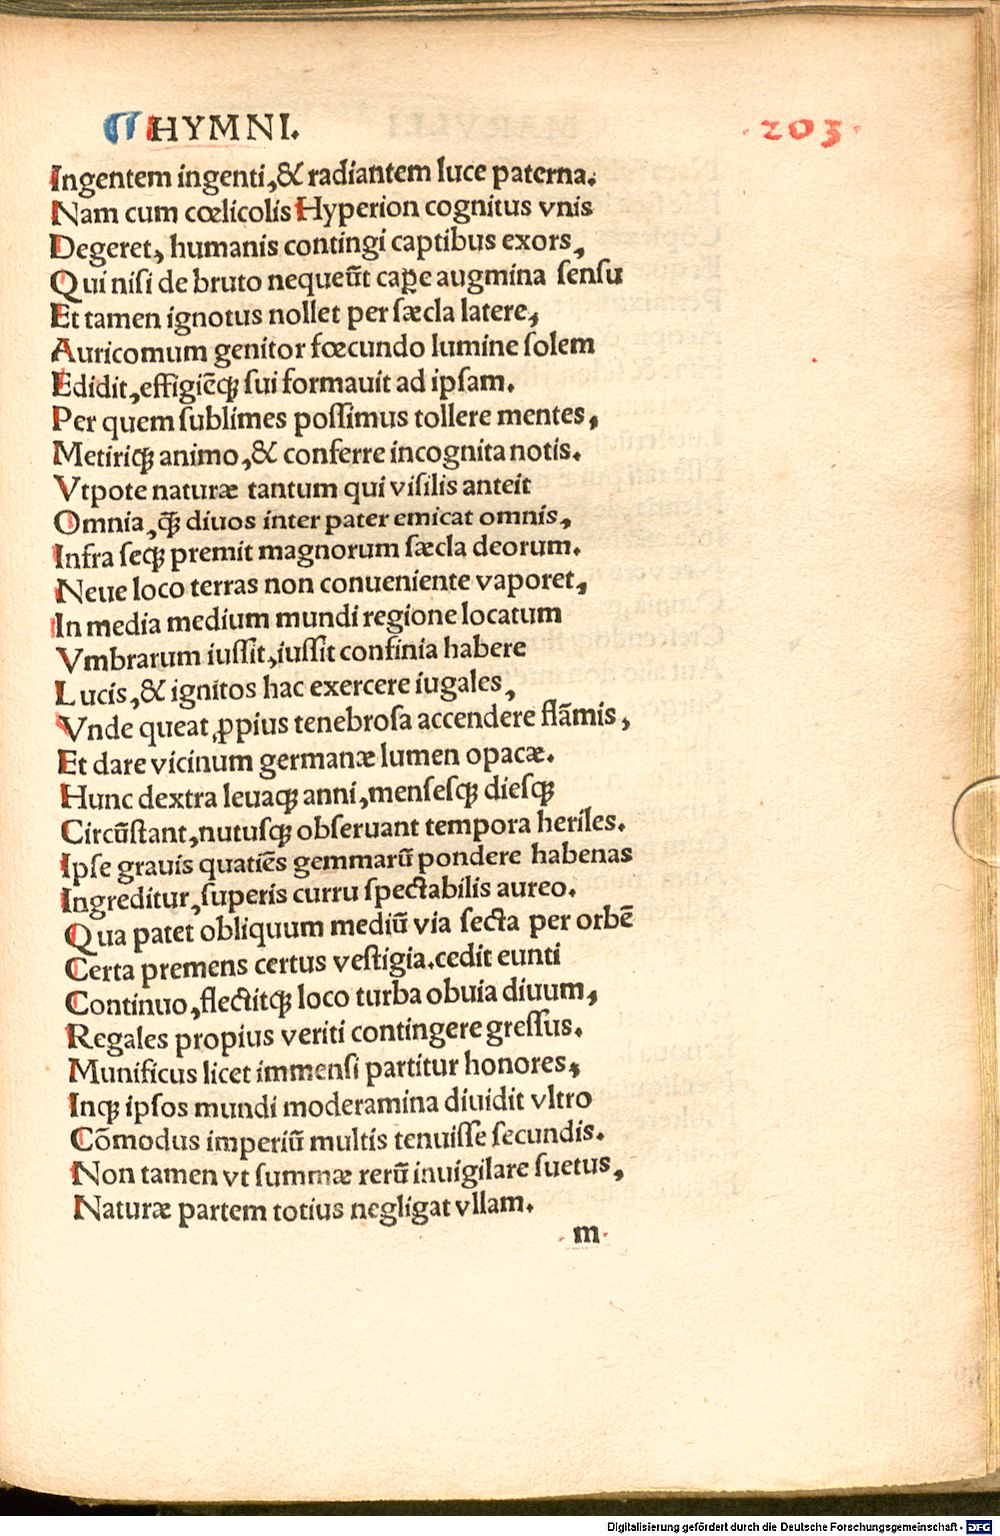 HYMNI.
·203·
Ingentem ingenti,& radiantem luce paterna.
Nam cum cœlicolis Hyperion cognitus vnis
Degeret, humanis contingi captibus exors,
Qui niſi de bruto nequeũt cap̱e augmina ſenſu
Et tamen ignotus nollet per ſæcla latere,
Auricomum genitor fœcundo lumine ſolem
Edidit,effigiẽqꝫ ſui formauit ad ipſam.
Per quem ſublimes poſſimus tollere mentes,
Metiriqꝫ animo,& conferre incognita notis.
Vtpote naturæ tantum qui viſilis anteit
Omnia,q̃ꝫ diuos inter pater emicat omnis,
Infra ſeqꝫ premit magnorum ſæcla deorum.
Neue loco terras non conueniente vaporet,
In media medium mundi regione locatum
Vmbrarum iuſſit,iuſſit confinia habere
Lucis,& ignitos hac exercere iugales,
Vnde queat ꝓpius tenebroſa accendere flãmis,
Et dare vicinum germanæ lumen opacæ.
Hunc dextra leuaqꝫ anni,menſeſqꝫ dieſqꝫ
Circũſtant,nutuſqꝫ obſeruant tempora heriles.
Ipſe grauis quatiẽs gemmarũ pondere habenas
Ingreditur,ſuperis curru ſpectabilis aureo.
Qua patet obliquum mediũ via ſecta per orbẽ
Certa premens certus veſtigia.cedit eunti
Continuo,flectitqꝫ loco turba obuia diuum,
Regales propius veriti contingere greſſus.
Munificus licet immenſi partitur honores,
Inqꝫ ipſos mundi moderamina diuidit vltro
Cõmodus imperiũ multis tenuiſſe ſecundis.
Non tamen vt ſummæ rerũ inuigilare ſuetus,
Naturæ partem totius negligat vllam.
m
Digitalisierung gefördert durch die Deutsche Forschungsgemeinschaft - DFG